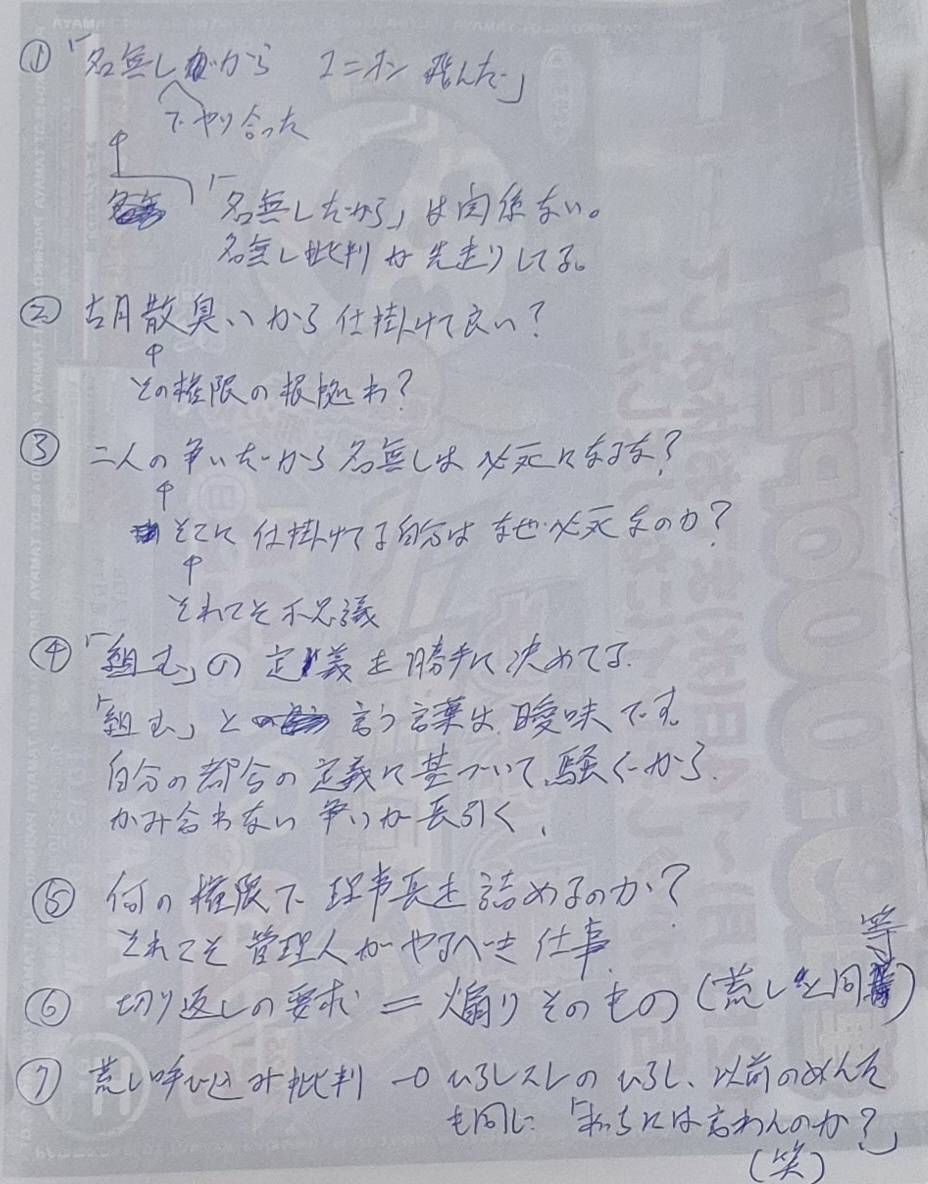 ①「名無しだから ユニオン 飛んだ」
でやり合った
「名無しだから」は関係ない。
名無し批判が先走りしてる。
② 胡散臭いから仕掛けて良い？
その権限の根拠わ？
③ 二人の争いだから名無しは必死になるな？
そこに仕掛けてる自分はなぜ必死なのか？
それこそ不思議
④「組む」の定義を勝手に決めてる.
「組む」と言う言葉は曖昧です.
自分の都合の定義に基づいて騒ぐから.
かみ合わない争いが長引く.
⑤ 何の権限で理事長を詰めるのか？
それこそ管理人がやるべき仕事.
⑥ 切り返しの要求＝煽りそのもの(荒しと同等)
⑦ 荒し呼び込み批判 → ひろしスレのひろし、以前のめんそ
も同じ「わっちには言わんのか？」
(笑)